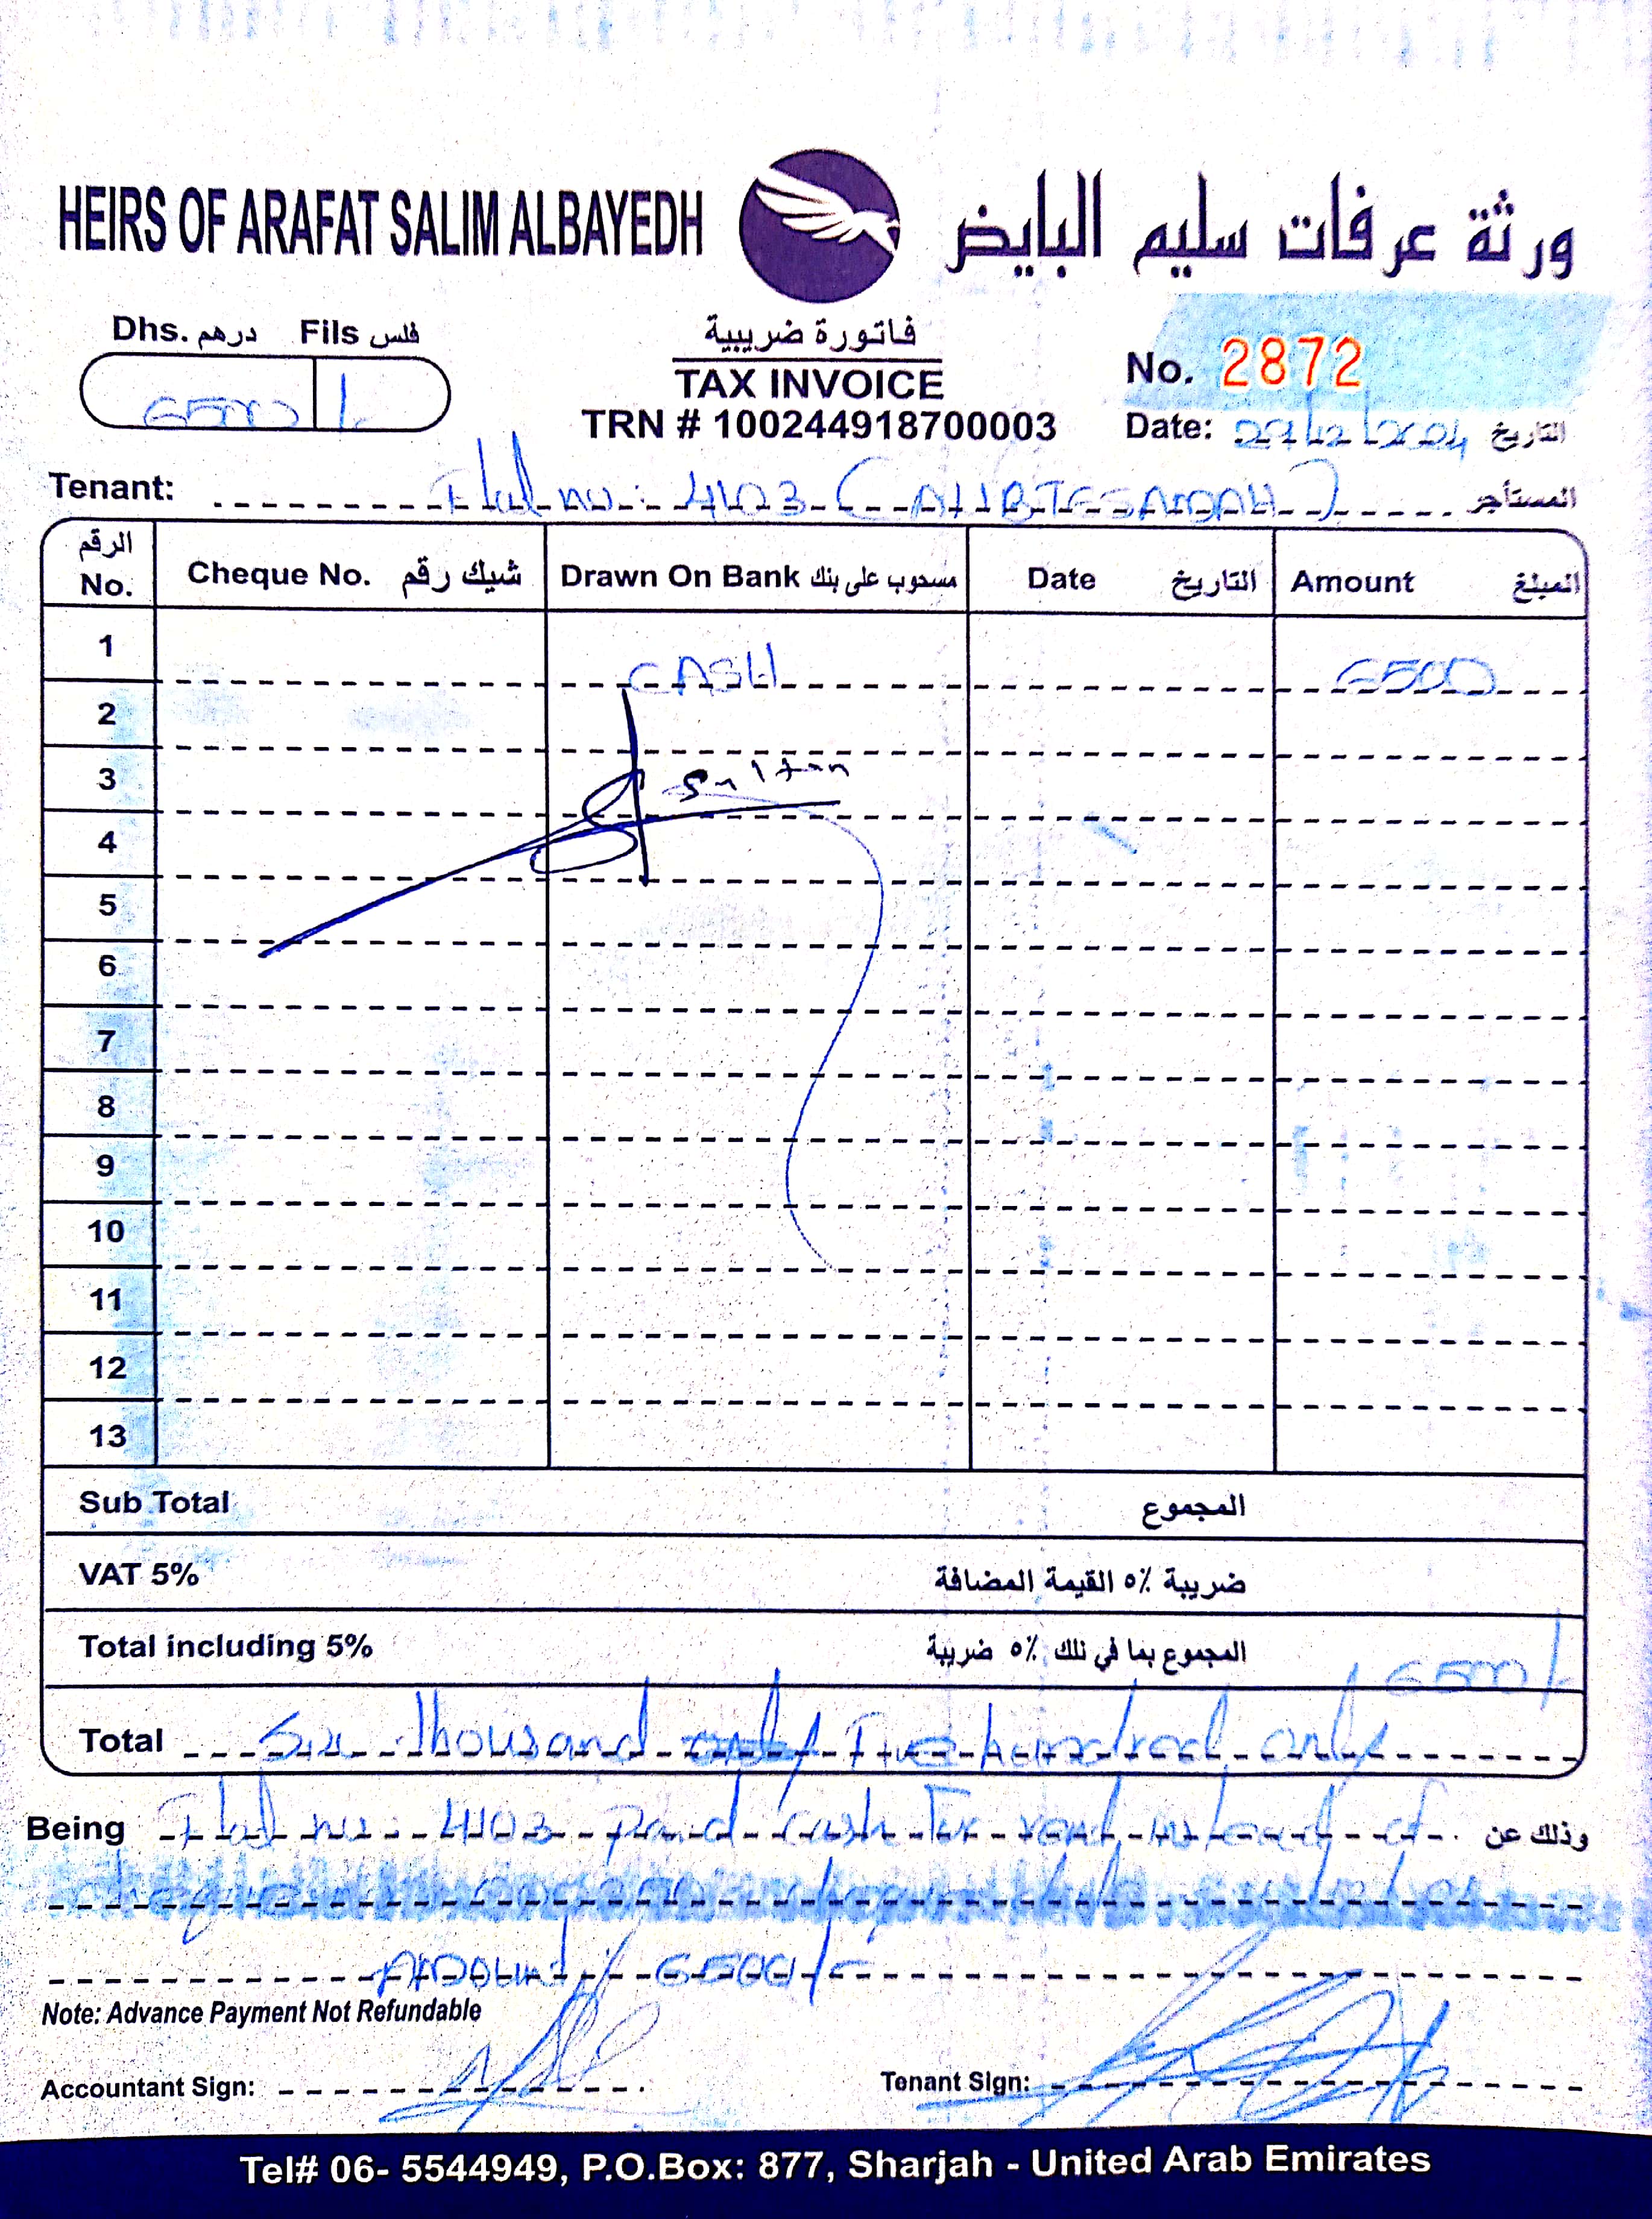 HEIRS OF ARAFAT SALIM ALBAYEDH ورثة عرفات سليم البايض
Dhs. درهم Fils فلس
6500 /-
فاتورة ضريبية
TAX INVOICE
TRN # 100244918700003
No. 2872
Date: 27/12/2024 التاريخ
Tenant: Flat no: 4103 المستأجر
الرقم No. Cheque No. شيك رقم Drawn On Bank مسحوب على بنك Date التاريخ Amount المبلغ
1 CASH 6500
2
3 Sultan
4
5
6
7
8
9
10
11
12
13
Sub Total المجموع
VAT 5% ضريبة ٥٪ القيمة المضافة
Total including 5% المجموع بما في ذلك ٥٪ ضريبة 6500/-
Total Six thousand only Five hundred only
Being Flat no: 4103 Paid Cash For rent instead of وذلك عن
Amount: 6500/-
Note: Advance Payment Not Refundable
Accountant Sign:
Tenant Sign:
Tel# 06- 5544949, P.O.Box: 877, Sharjah - United Arab Emirates